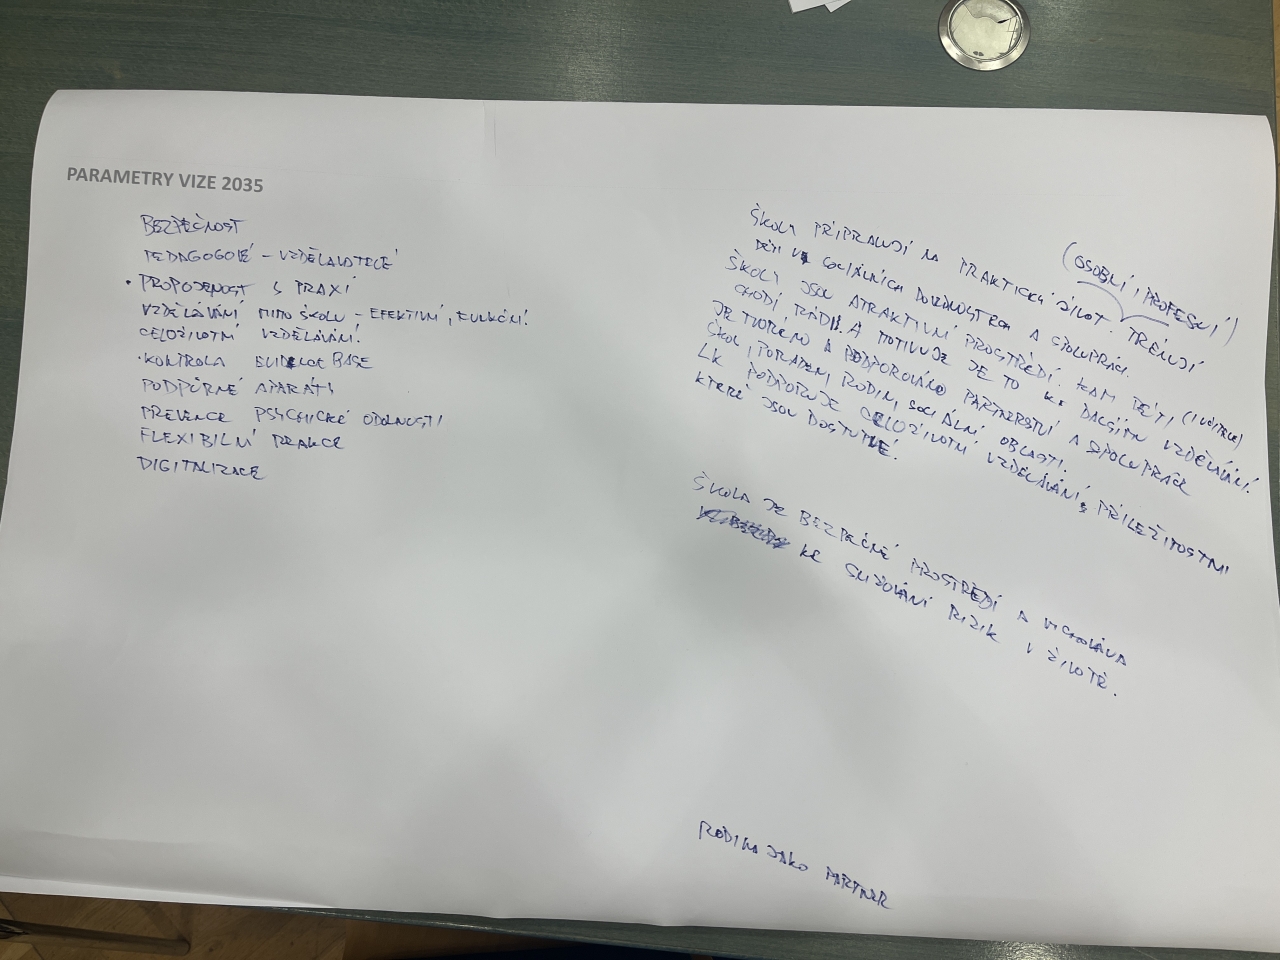 PARAMETRY VIZE 2035
BEZPEČNOST
PEDAGOGOVÉ - VZDĚLAVATELÉ
• PROPOJENOST S PRAXÍ
VZDĚLÁVÁNÍ MIMO ŠKOLU - EFEKTIVNÍ, FUNKČNÍ.
CELOŽIVOTNÍ VZDĚLÁVÁNÍ.
• KONTROLA EVIDENCE BASE
PODPŮRNÉ APARÁTY
PREVENCE PSYCHICKÉ ODOLNOSTI
FLEXIBILNÍ
DIGITALIZACE
(OSOBNÍ, PROFESNÍ)
ŠKOLY PŘIPRAVUJÍ NA PRAKTICKÝ ŽIVOT. TRÉNUJÍ
DĚTI V SOCIÁLNÍCH DOVEDNOSTECH A SPOLUPRÁCI.
ŠKOLY JSOU ATRAKTIVNÍ PROSTŘEDÍ. KAM DĚTI (I UČITELÉ)
CHODÍ RÁDI A MOTIVUJE JE TO KE DALŠÍMU VZDĚLÁVÁNÍ.
JE TVOŘENO A PODPOROVÁNO PARTNERSTVÍ A SPOLUPRÁCE
ŠKOL, PORADEN, RODIN, SOCIÁLNÍ OBLASTI.
LK PODPORUJE CELOŽIVOTNÍ VZDĚLÁVÁNÍ, PŘÍLEŽITOSTMI
KTERÉ JSOU DOSTUPNÉ.
ŠKOLA JE BEZPEČNÉ PROSTŘEDÍ A VYCHOVÁVÁ
KE SNIŽOVÁNÍ RIZIK V ŽIVOTĚ.
RODINA JAKO PARTNER